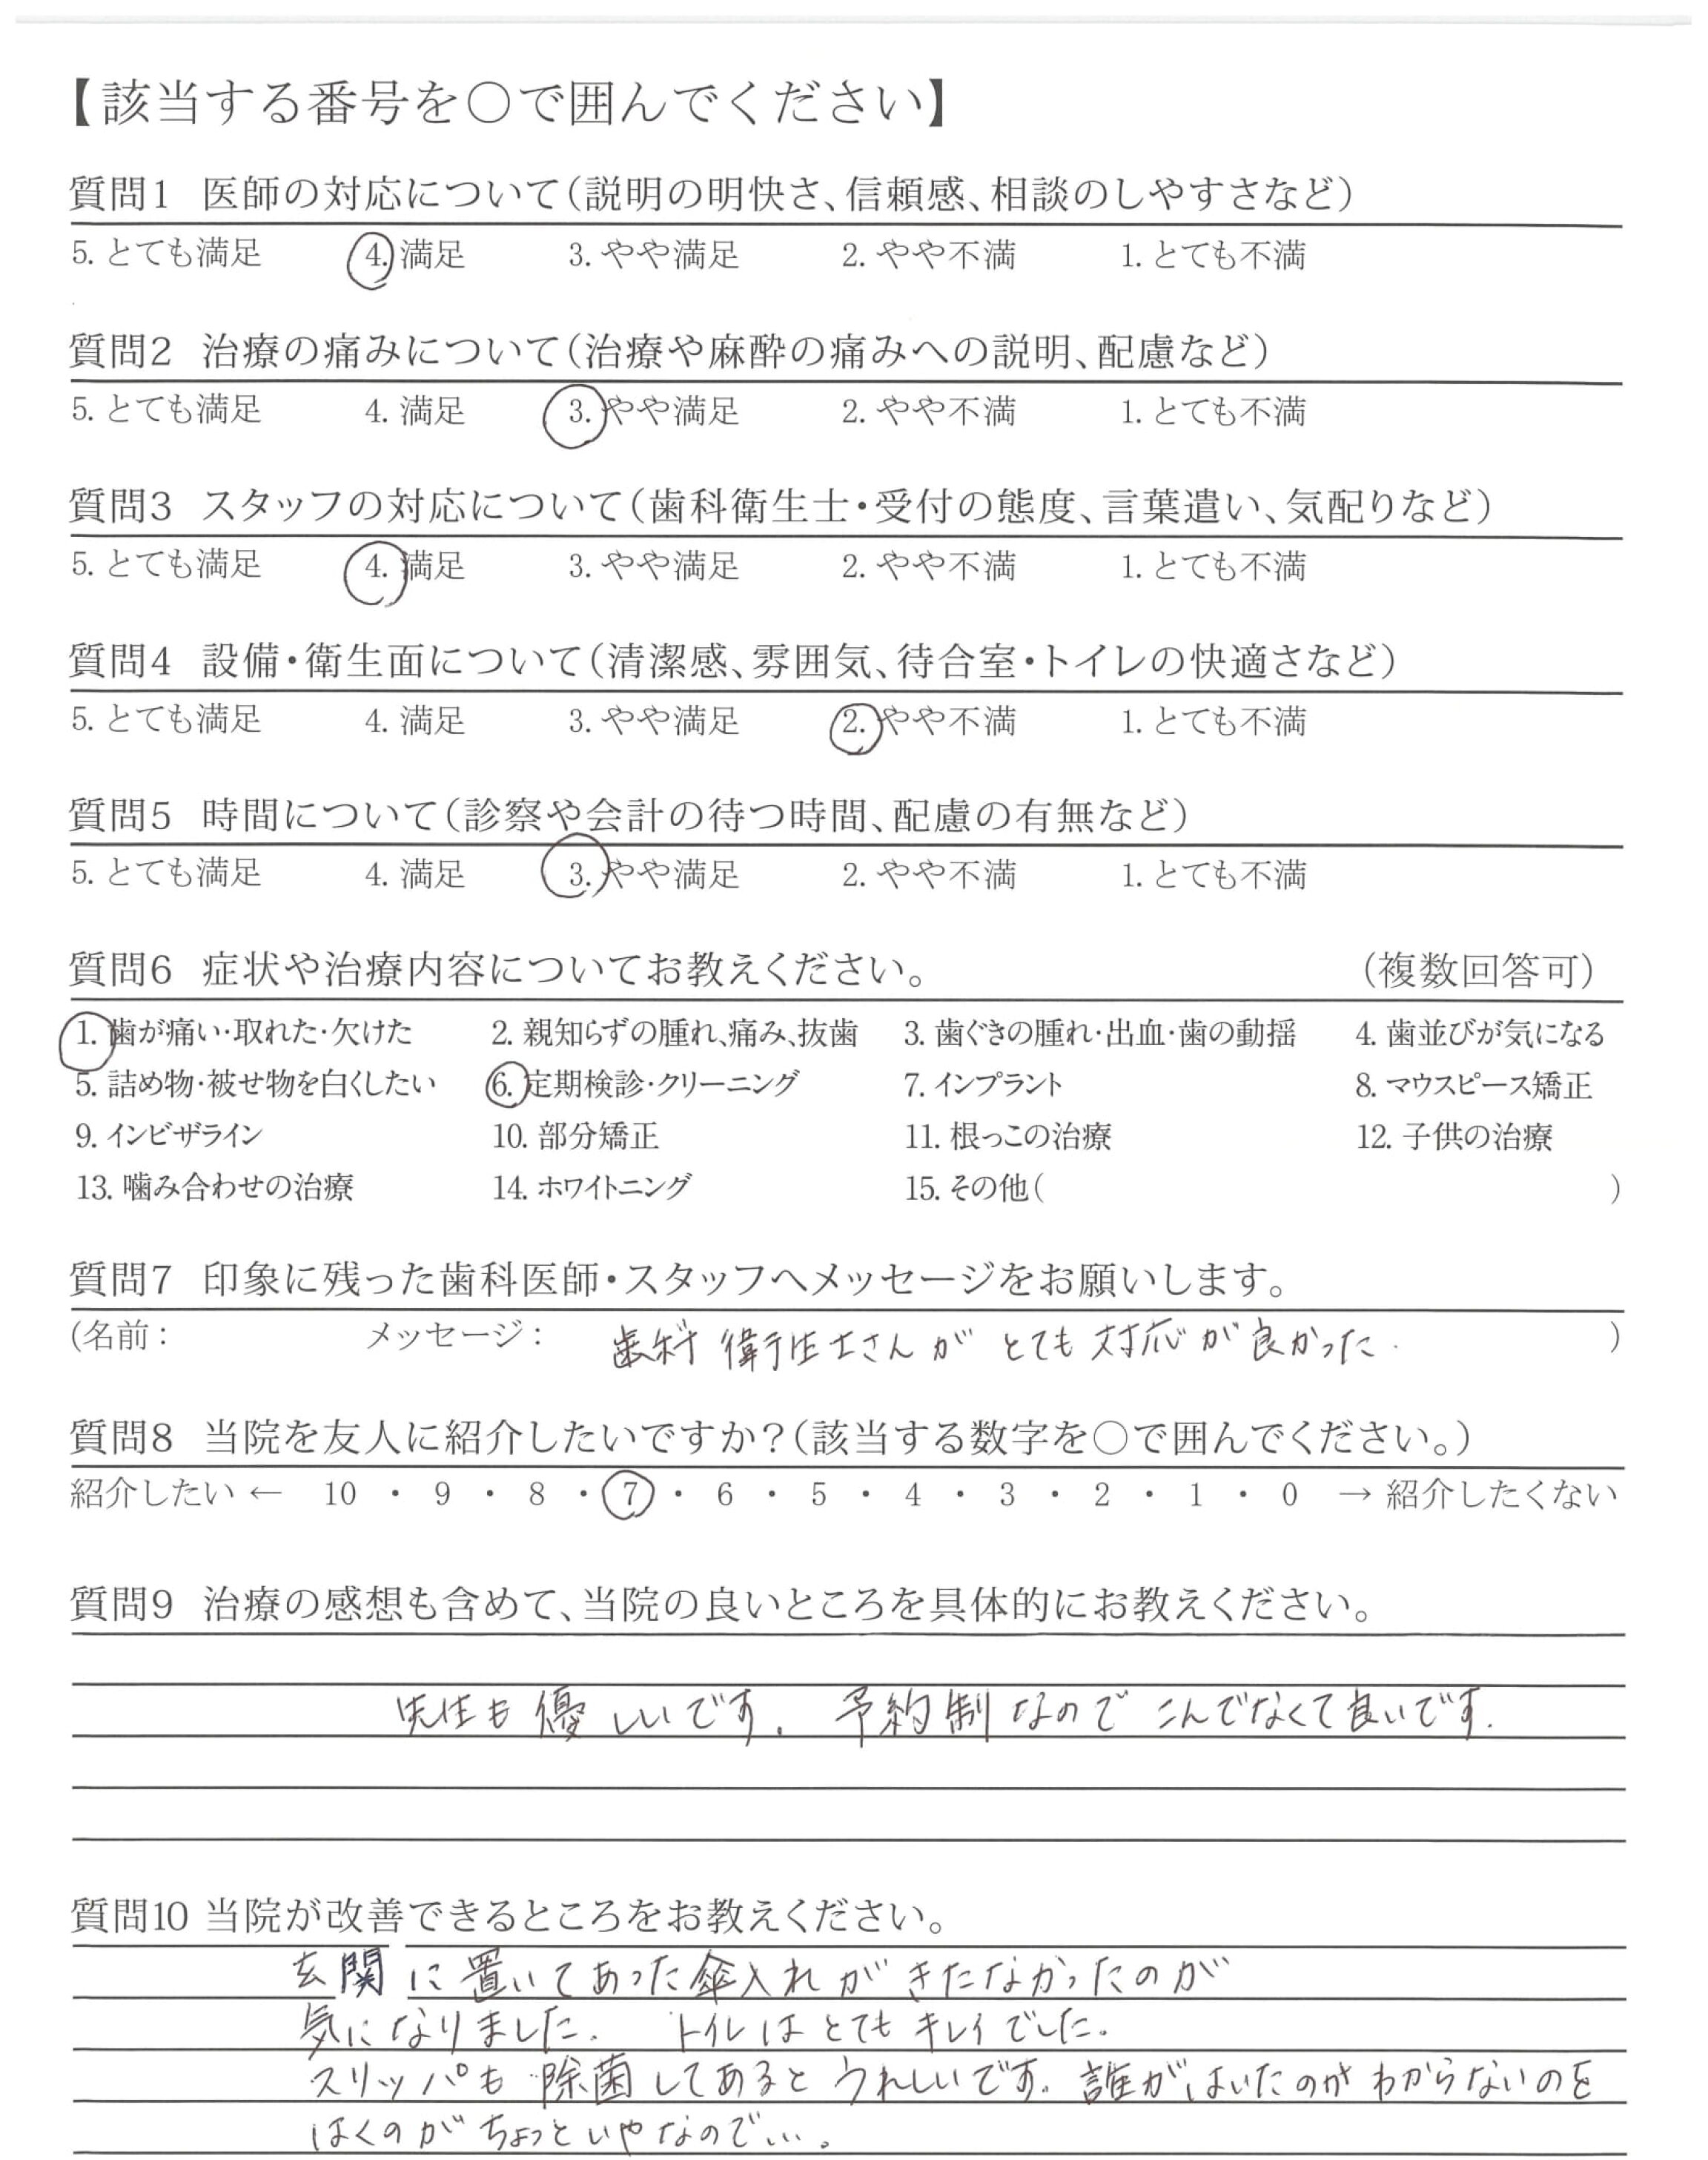 【該当する番号を○で囲んでください】
質問1 医師の対応について(説明の明快さ、信頼感、相談のしやすさなど)
5. とても満足 4. 満足 3. やや満足 2. やや不満 1. とても不満
質問2 治療の痛みについて(治療や麻酔の痛みへの説明、配慮など)
5. とても満足 4. 満足 3. やや満足 2. やや不満 1. とても不満
質問3 スタッフの対応について(歯科衛生士・受付の態度、言葉遣い、気配りなど)
5. とても満足 4. 満足 3. やや満足 2. やや不満 1. とても不満
質問4 設備・衛生面について(清潔感、雰囲気、待合室・トイレの快適さなど)
5. とても満足 4. 満足 3. やや満足 2. やや不満 1. とても不満
質問5 時間について(診察や会計の待つ時間、配慮の有無など)
5. とても満足 4. 満足 3. やや満足 2. やや不満 1. とても不満
質問6 症状や治療内容についてお教えください。 (複数回答可)
1. 歯が痛い・取れた・欠けた 2. 親知らずの腫れ、痛み、抜歯 3. 歯ぐきの腫れ・出血・歯の動揺 4. 歯並びが気になる
5. 詰め物・被せ物を白くしたい 6. 定期検診・クリーニング 7. インプラント 8. マウスピース矯正
9. インビザライン 10. 部分矯正 11. 根っこの治療 12. 子供の治療
13. 噛み合わせの治療 14. ホワイトニング 15. その他( )
質問7 印象に残った歯科医師・スタッフへメッセージをお願いします。
(名前: メッセージ: 歯科衛生士さんが とても対応が良かった. )
質問8 当院を友人に紹介したいですか?(該当する数字を○で囲んでください。)
紹介したい ← 10 ・ 9 ・ 8 ・ 7 ・ 6 ・ 5 ・ 4 ・ 3 ・ 2 ・ 1 ・ 0 → 紹介したくない
質問9 治療の感想も含めて、当院の良いところを具体的にお教えください。
先生も優しいです. 予約制なので こんでなくて良いです.
質問10 当院が改善できるところをお教えください。
玄関に置いてあった傘入れがきたなかったのが
気になりました. トイレはとてもキレイでした.
スリッパも除菌してあるとうれしいです. 誰がはいたのかわからないのを
はくのがちょっといやなので….